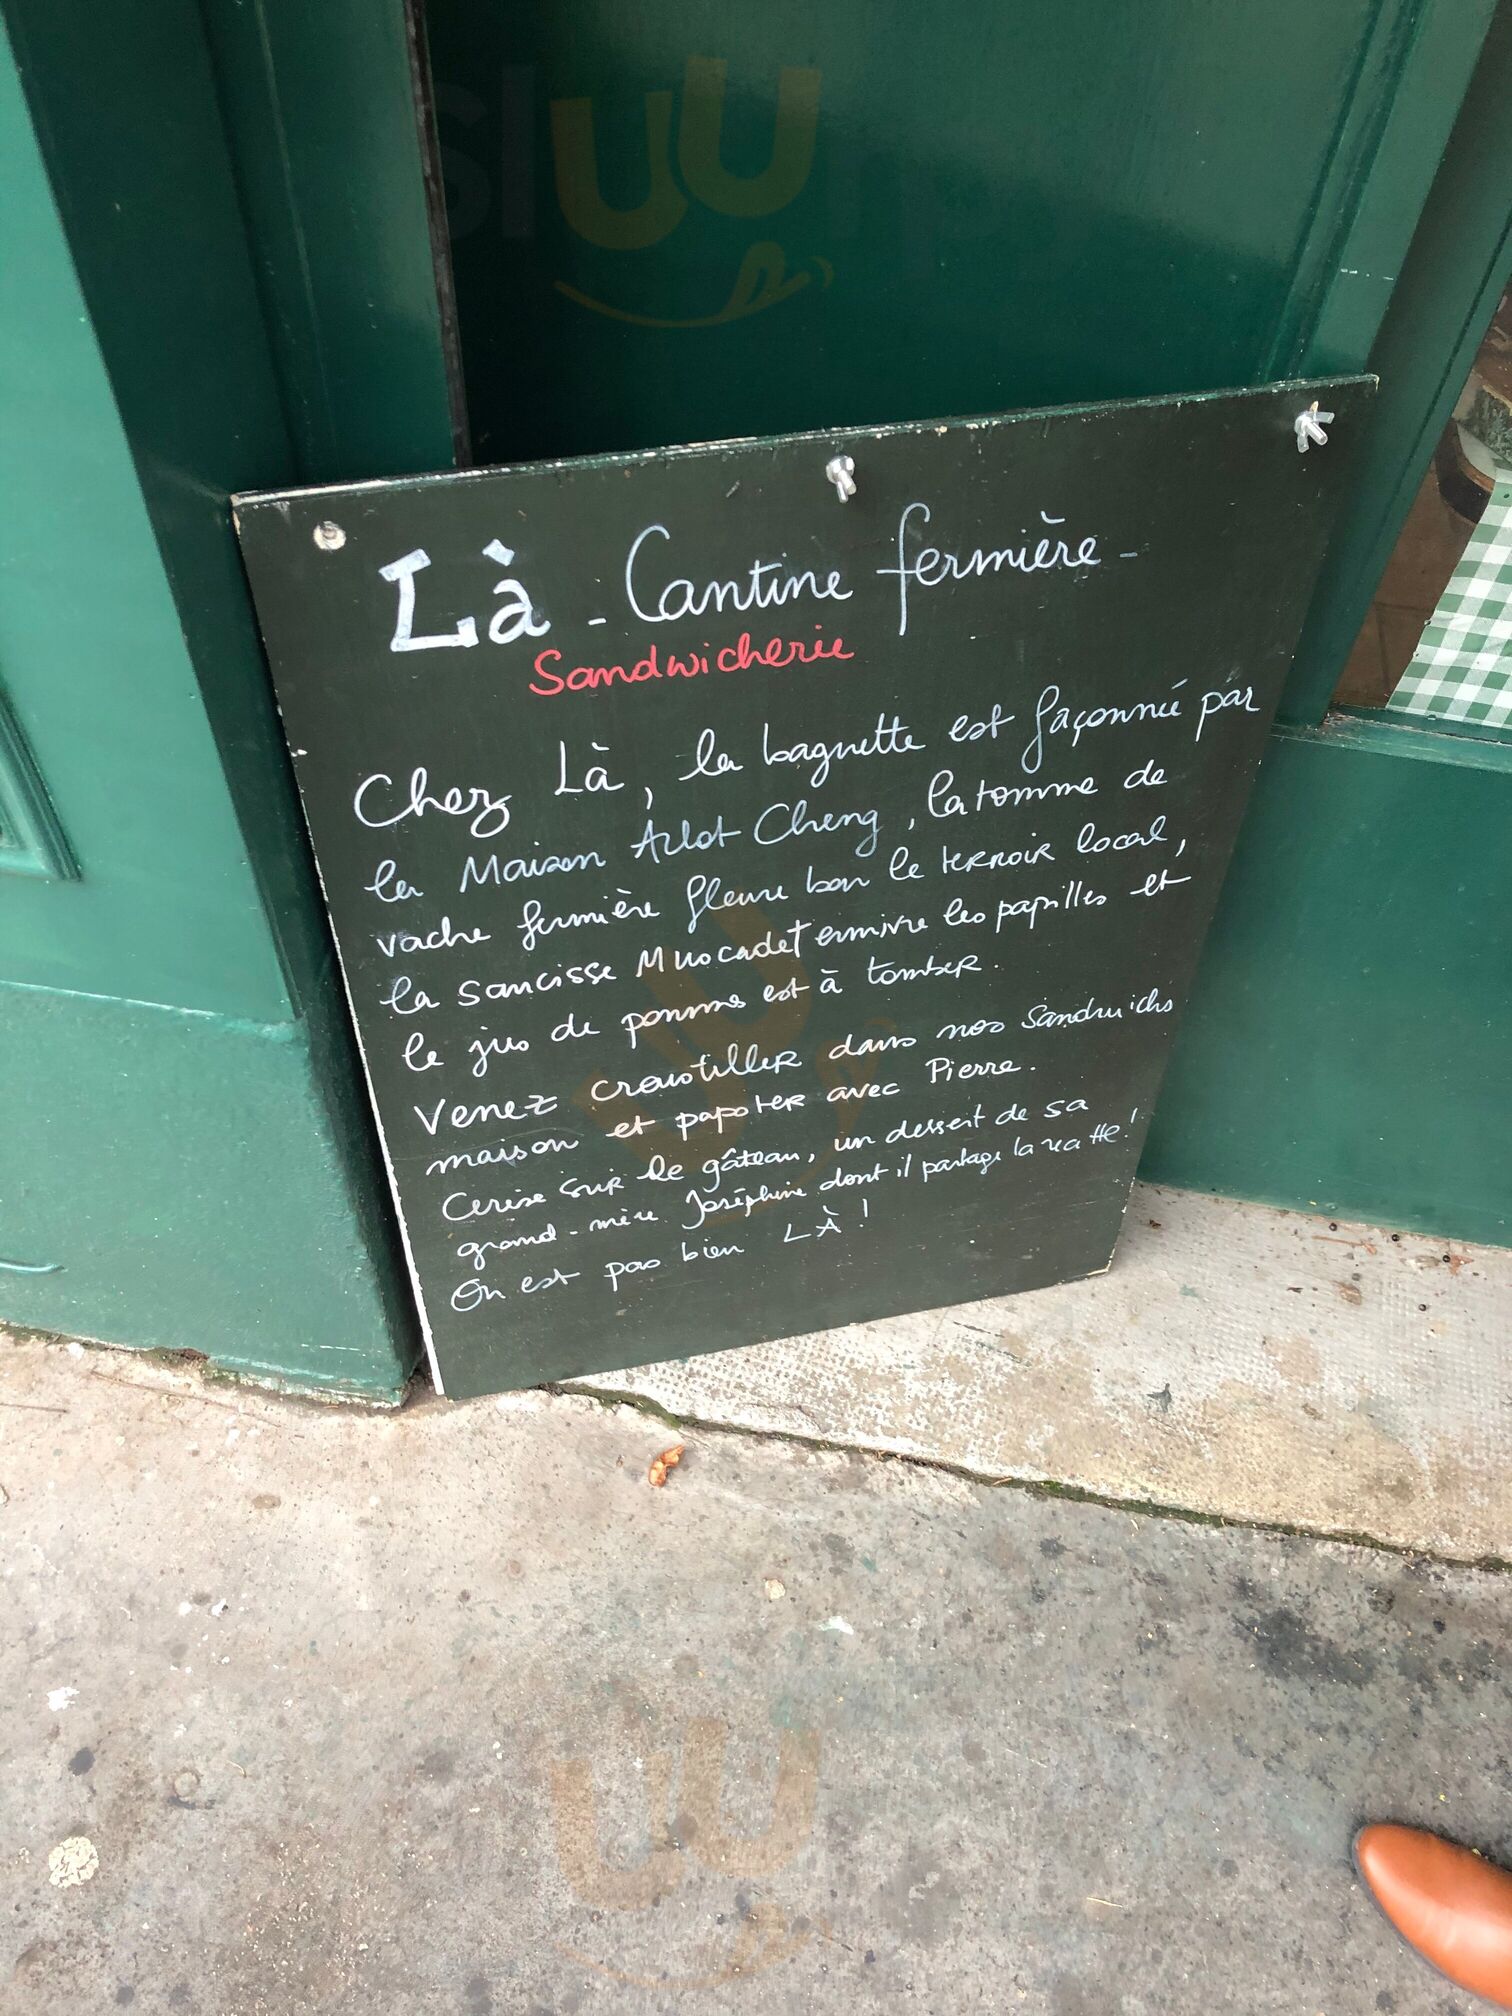 Là - Cantine fermière -
Sandwicherie
Chez Là, la baguette est façonné par
la Maison Arlot Cheng, la tomme de
vache fermière fleure bon le terroir local,
la saucisse Muscadet enivre les papilles et
le jus de pommes est à tomber.
Venez croustiller dans nos sandwichs
maison et papoter avec Pierre.
Cerise sur le gâteau, un dessert de sa
grand-mère Joséphine dont il partage la recette !
On est pas bien LÀ !